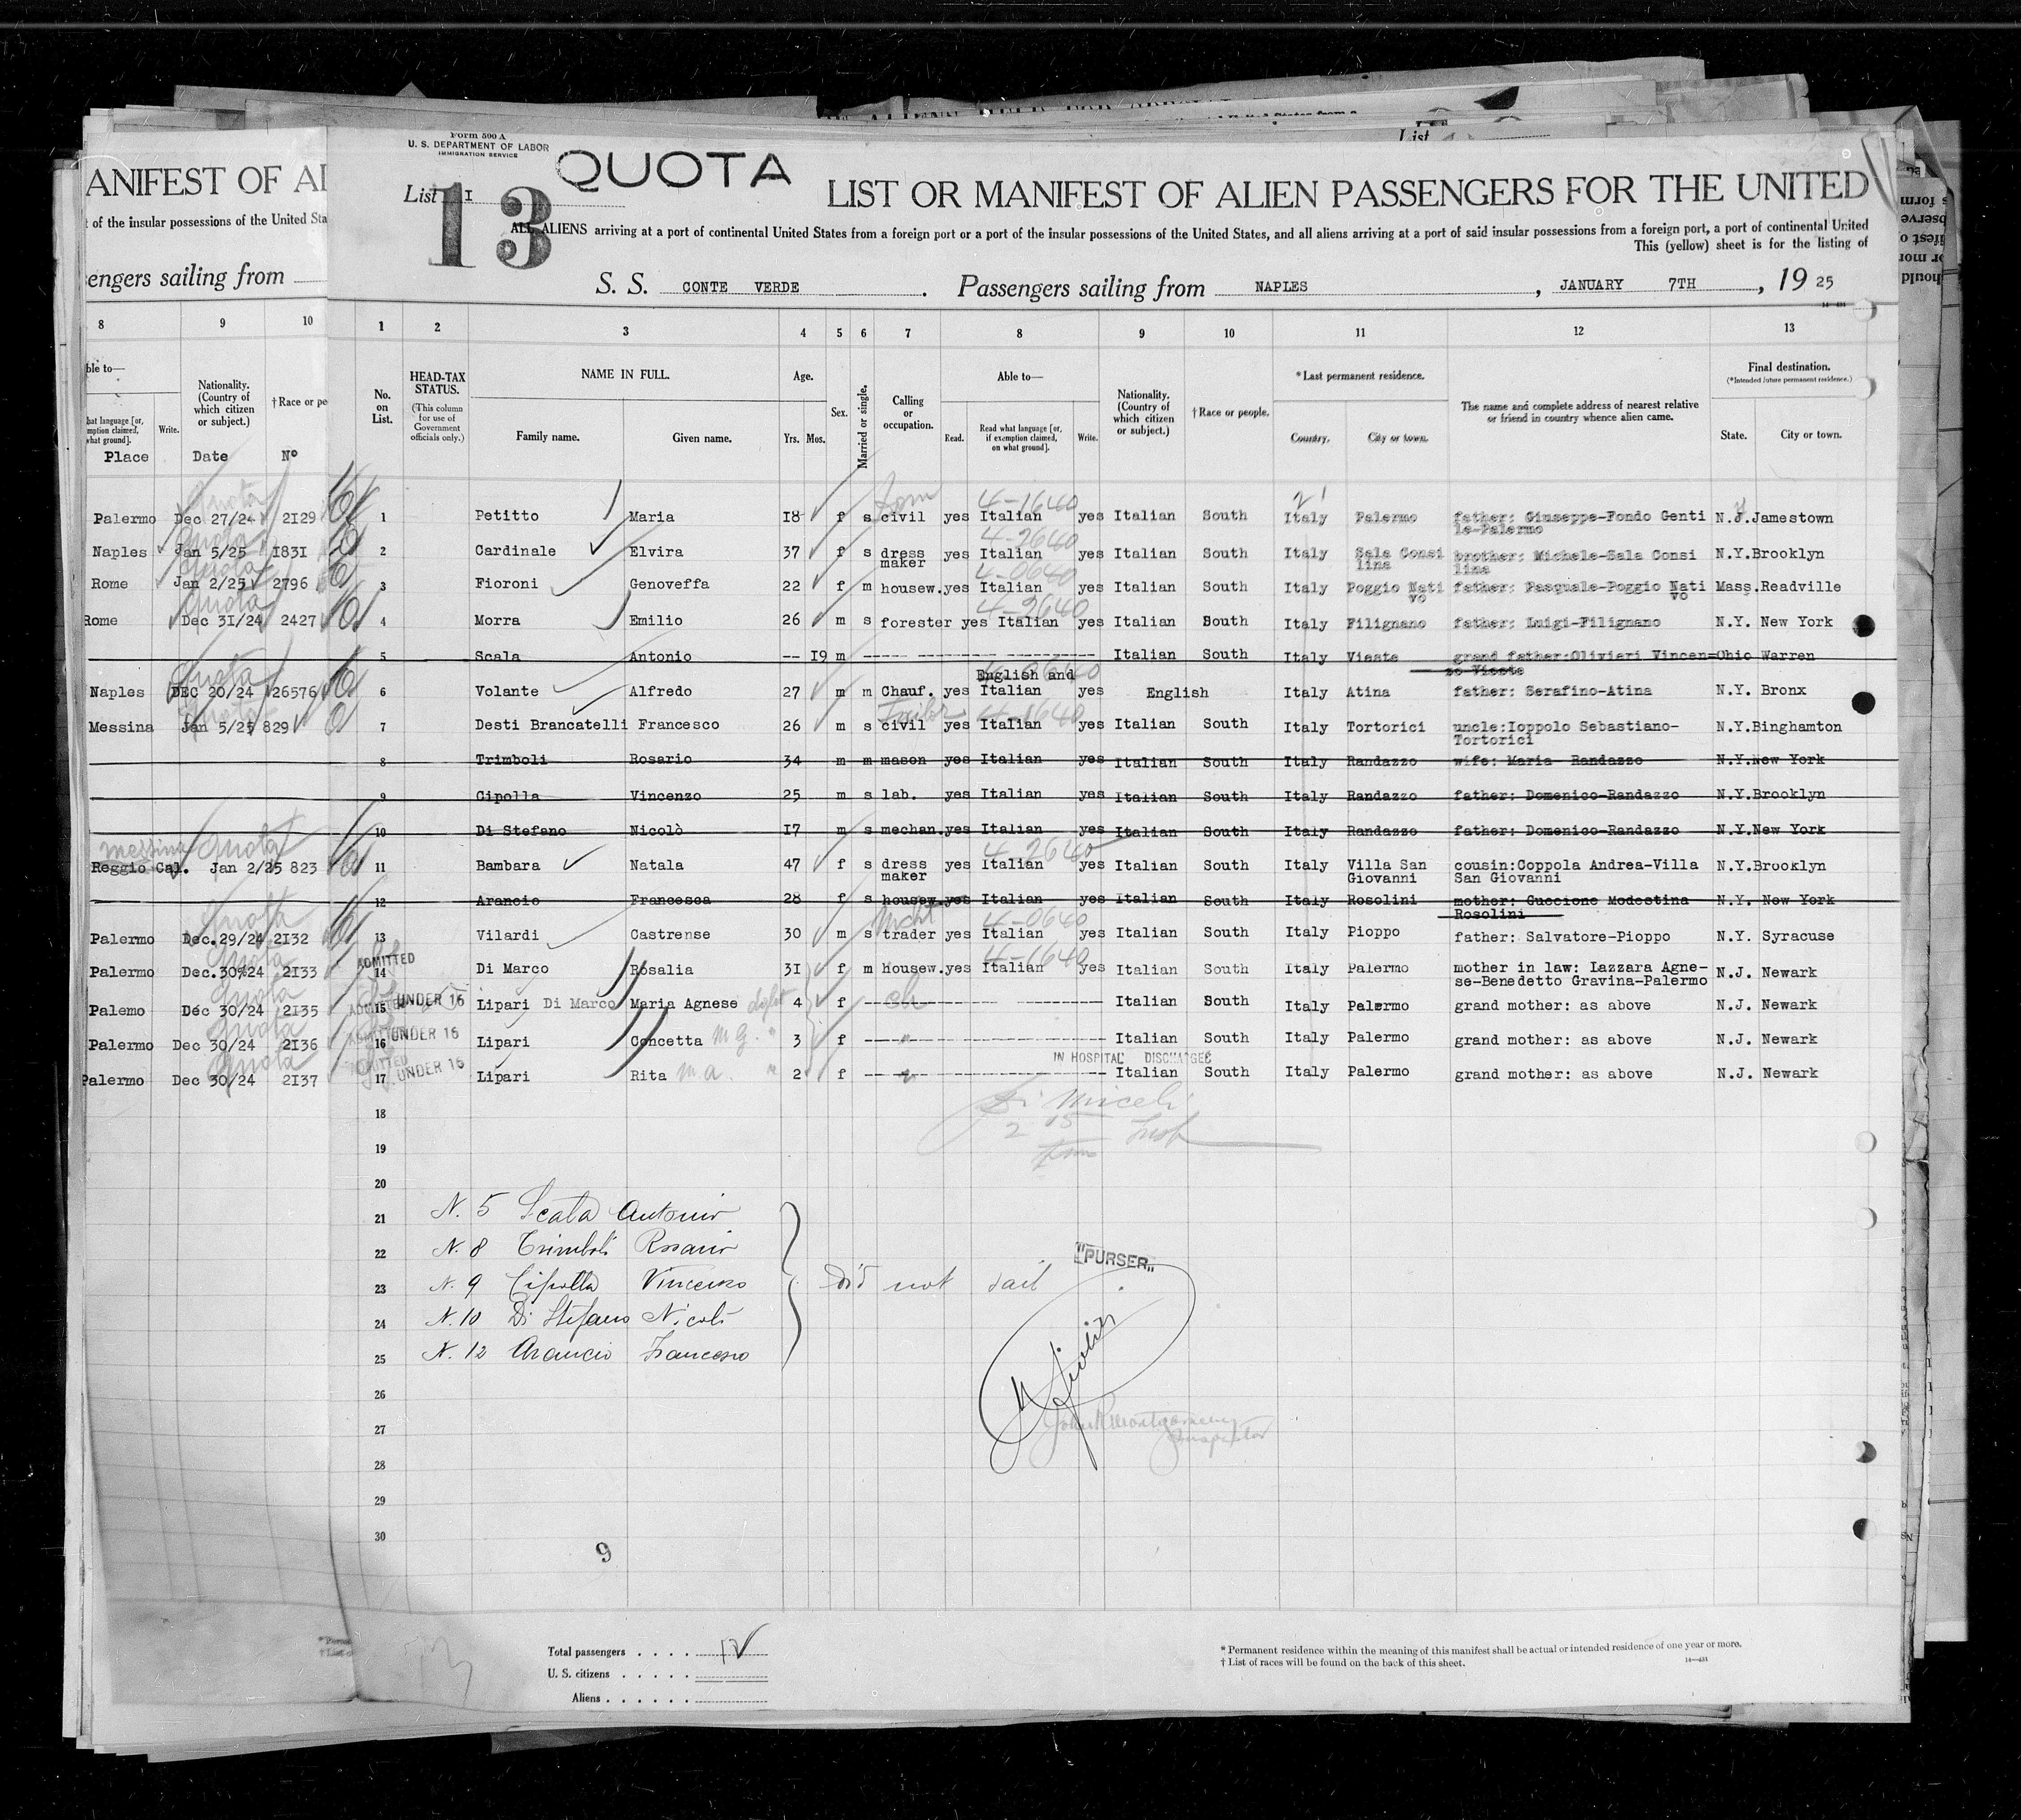 Form 500 A
U. S. DEPARTMENT OF LABOR
IMMIGRATION SERVICE
QUOTA
List I
13
LIST OR MANIFEST OF ALIEN PASSENGERS FOR THE UNITED
ALL ALIENS arriving at a port of continental United States from a foreign port or a port of the insular possessions of the United States, and all aliens arriving at a port of said insular possessions from a foreign port, a port of continental United
This (yellow) sheet is for the listing of
S. S. CONTE VERDE. Passengers sailing from NAPLES, JANUARY 7TH, 19 25
ANIFEST OF AL
t of the insular possessions of the United Sta
sengers sailing from
8 9 10 1 2 3 4 5 6 7 8 9 10 11 12 13
ble to— Nationality. (Country of which citizen or subject.) †Race or pe
hat language [or, mption claimed, what ground]. Write.
Place Date Nº
No. on List. HEAD-TAX STATUS. (This column for use of Government officials only.) NAME IN FULL. Family name. Given name. Age. Yrs. Mos. Sex. Married or single. Calling or occupation. Able to— Read. Read what language [or, if exemption claimed, on what ground]. Write. Nationality. (Country of which citizen or subject.) †Race or people. *Last permanent residence. Country. City or town. The name and complete address of nearest relative or friend in country whence alien came. Final destination. (*Intended future permanent residence.) State. City or town.
Palermo Dec 27/24 2I29 1 Petitto Maria I8 f s civil yes Italian yes Italian South Italy Palermo father: Giuseppe-Fondo Genti N.J. Jamestown
le-Palermo
Naples Jan 5/25 I83I 2 Cardinale Elvira 37 f s dress yes Italian yes Italian South Italy Sala Consi brother: Michele-Sala Consi N.Y. Brooklyn
maker lina lina
Rome Jan 2/25 2796 3 Fioroni Genoveffa 22 f m housew. yes Italian yes Italian South Italy Poggio Nati father: Pasquale-Poggio Nati Mass. Readville
vo vo
Rome Dec 3I/24 2427 4 Morra Emilio 26 m s forester yes Italian yes Italian South Italy Filignano father: Luigi-Filignano N.Y. New York
5 Scala Antonio -- I9 m Italian South Italy Vieste grand father:Olivieri Vincen=Ohio Warren
zo Vieste
English and
Naples DEC 20/24 26576 6 Volante Alfredo 27 m m Chauf. yes Italian yes English Italy Atina father: Serafino-Atina N.Y. Bronx
Tailor
Messina Jan 5/25 829 7 Desti Brancatelli Francesco 26 m s civil yes Italian yes Italian South Italy Tortorici uncle:Ioppolo Sebastiano- N.Y. Binghamton
Tortorici
8 Trimboli Rosario 34 m m mason yes Italian yes Italian South Italy Randazzo wife: Maria- Randazzo N.Y. New York
9 Cipolla Vincenzo 25 m s lab. yes Italian yes Italian South Italy Randazzo father: Domenico-Randazzo N.Y. Brooklyn
10 Di Stefano Nicolò I7 m s mechan. yes Italian yes Italian South Italy Randazzo father: Domenico-Randazzo N.Y. New York
Messina Quota 4-2640
Reggio Cal. Jan 2/25 823 11 Bambara Natala 47 f s dress yes Italian yes Italian South Italy Villa San cousin:Coppola Andrea-Villa N.Y. Brooklyn
maker Giovanni San Giovanni
12 Arancio Francesca 28 f s housew. yes Italian yes Italian South Italy Rosolini mother: Guccione Modestina N.Y. New York
Rosolini
Palermo Dec. 29/24 2I32 13 Vilardi Castrense 30 m s trader yes Italian yes Italian South Italy Pioppo father: Salvatore-Pioppo N.Y. Syracuse
ADMITTED
Palermo Dec.30%24 2I33 14 Di Marco Rosalia 3I f m housew. yes Italian yes Italian South Italy Palermo mother in law: Lazzara Agne- N.J. Newark
se-Benedetto Gravina-Palermo
Palemo Dec 30/24 2I35 15 UNDER 16 Lipari Di Marco Maria Agnese 4 f Italian South Italy Palermo grand mother: as above N.J. Newark
Palermo Dec 30/24 2I36 16 UNDER 16 Lipari Concetta M G. 3 f " Italian South Italy Palermo grand mother: as above N.J. Newark
IN HOSPITAL DISCHARGED
Palermo Dec 30/24 2I37 17 UNDER 16 Lipari Rita m a. " 2 f Italian South Italy Palermo grand mother: as above N.J. Newark
18
19
20
21 N. 5 Scala Antonio
22 N. 8 Trimboli Rosario
23 N. 9 Cipolla Vincenzo Did not sail
"PURSER"
24 N. 10 Di Stefano Nicolò
25 N. 12 Arancio Francesco
26
27 John R Montgomery
Inspector
28
29
30
9
Total passengers . . . . 12
U. S. citizens . . . . .
Aliens . . . . . .
* Permanent residence within the meaning of this manifest shall be actual or intended residence of one year or more.
† List of races will be found on the back of this sheet.
14—431